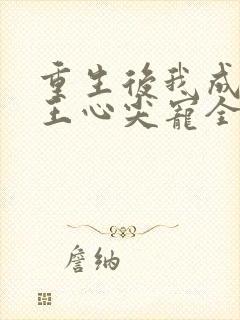 重生後我成
王心尖寵全
詹納